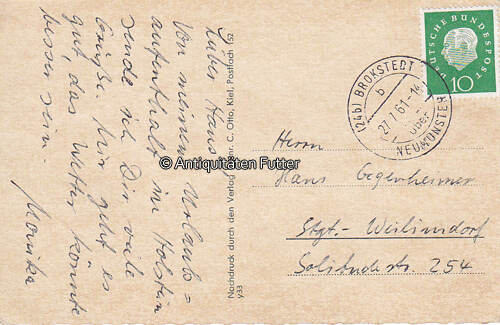 Lieber Hans
Von meinem Urlaubs=
aufenthalt in Holstein
sende ich Dir viele
Grüße. Mir geht es
gut, das Wetter könnte
besser sein.
Monika
Nachdruck durch den Verlag Schr. C. Otto, Kiel, Postfach 152
y33
© Antiquitäten Futter
DEUTSCHE BUNDESPOST
10
(24b) BROKSTEDT
b
27.1.61-14
über
NEUMÜNSTER
Herrn
Hans Gegenheimer
Stgt.- Weilimdorf
Solitudestr. 254